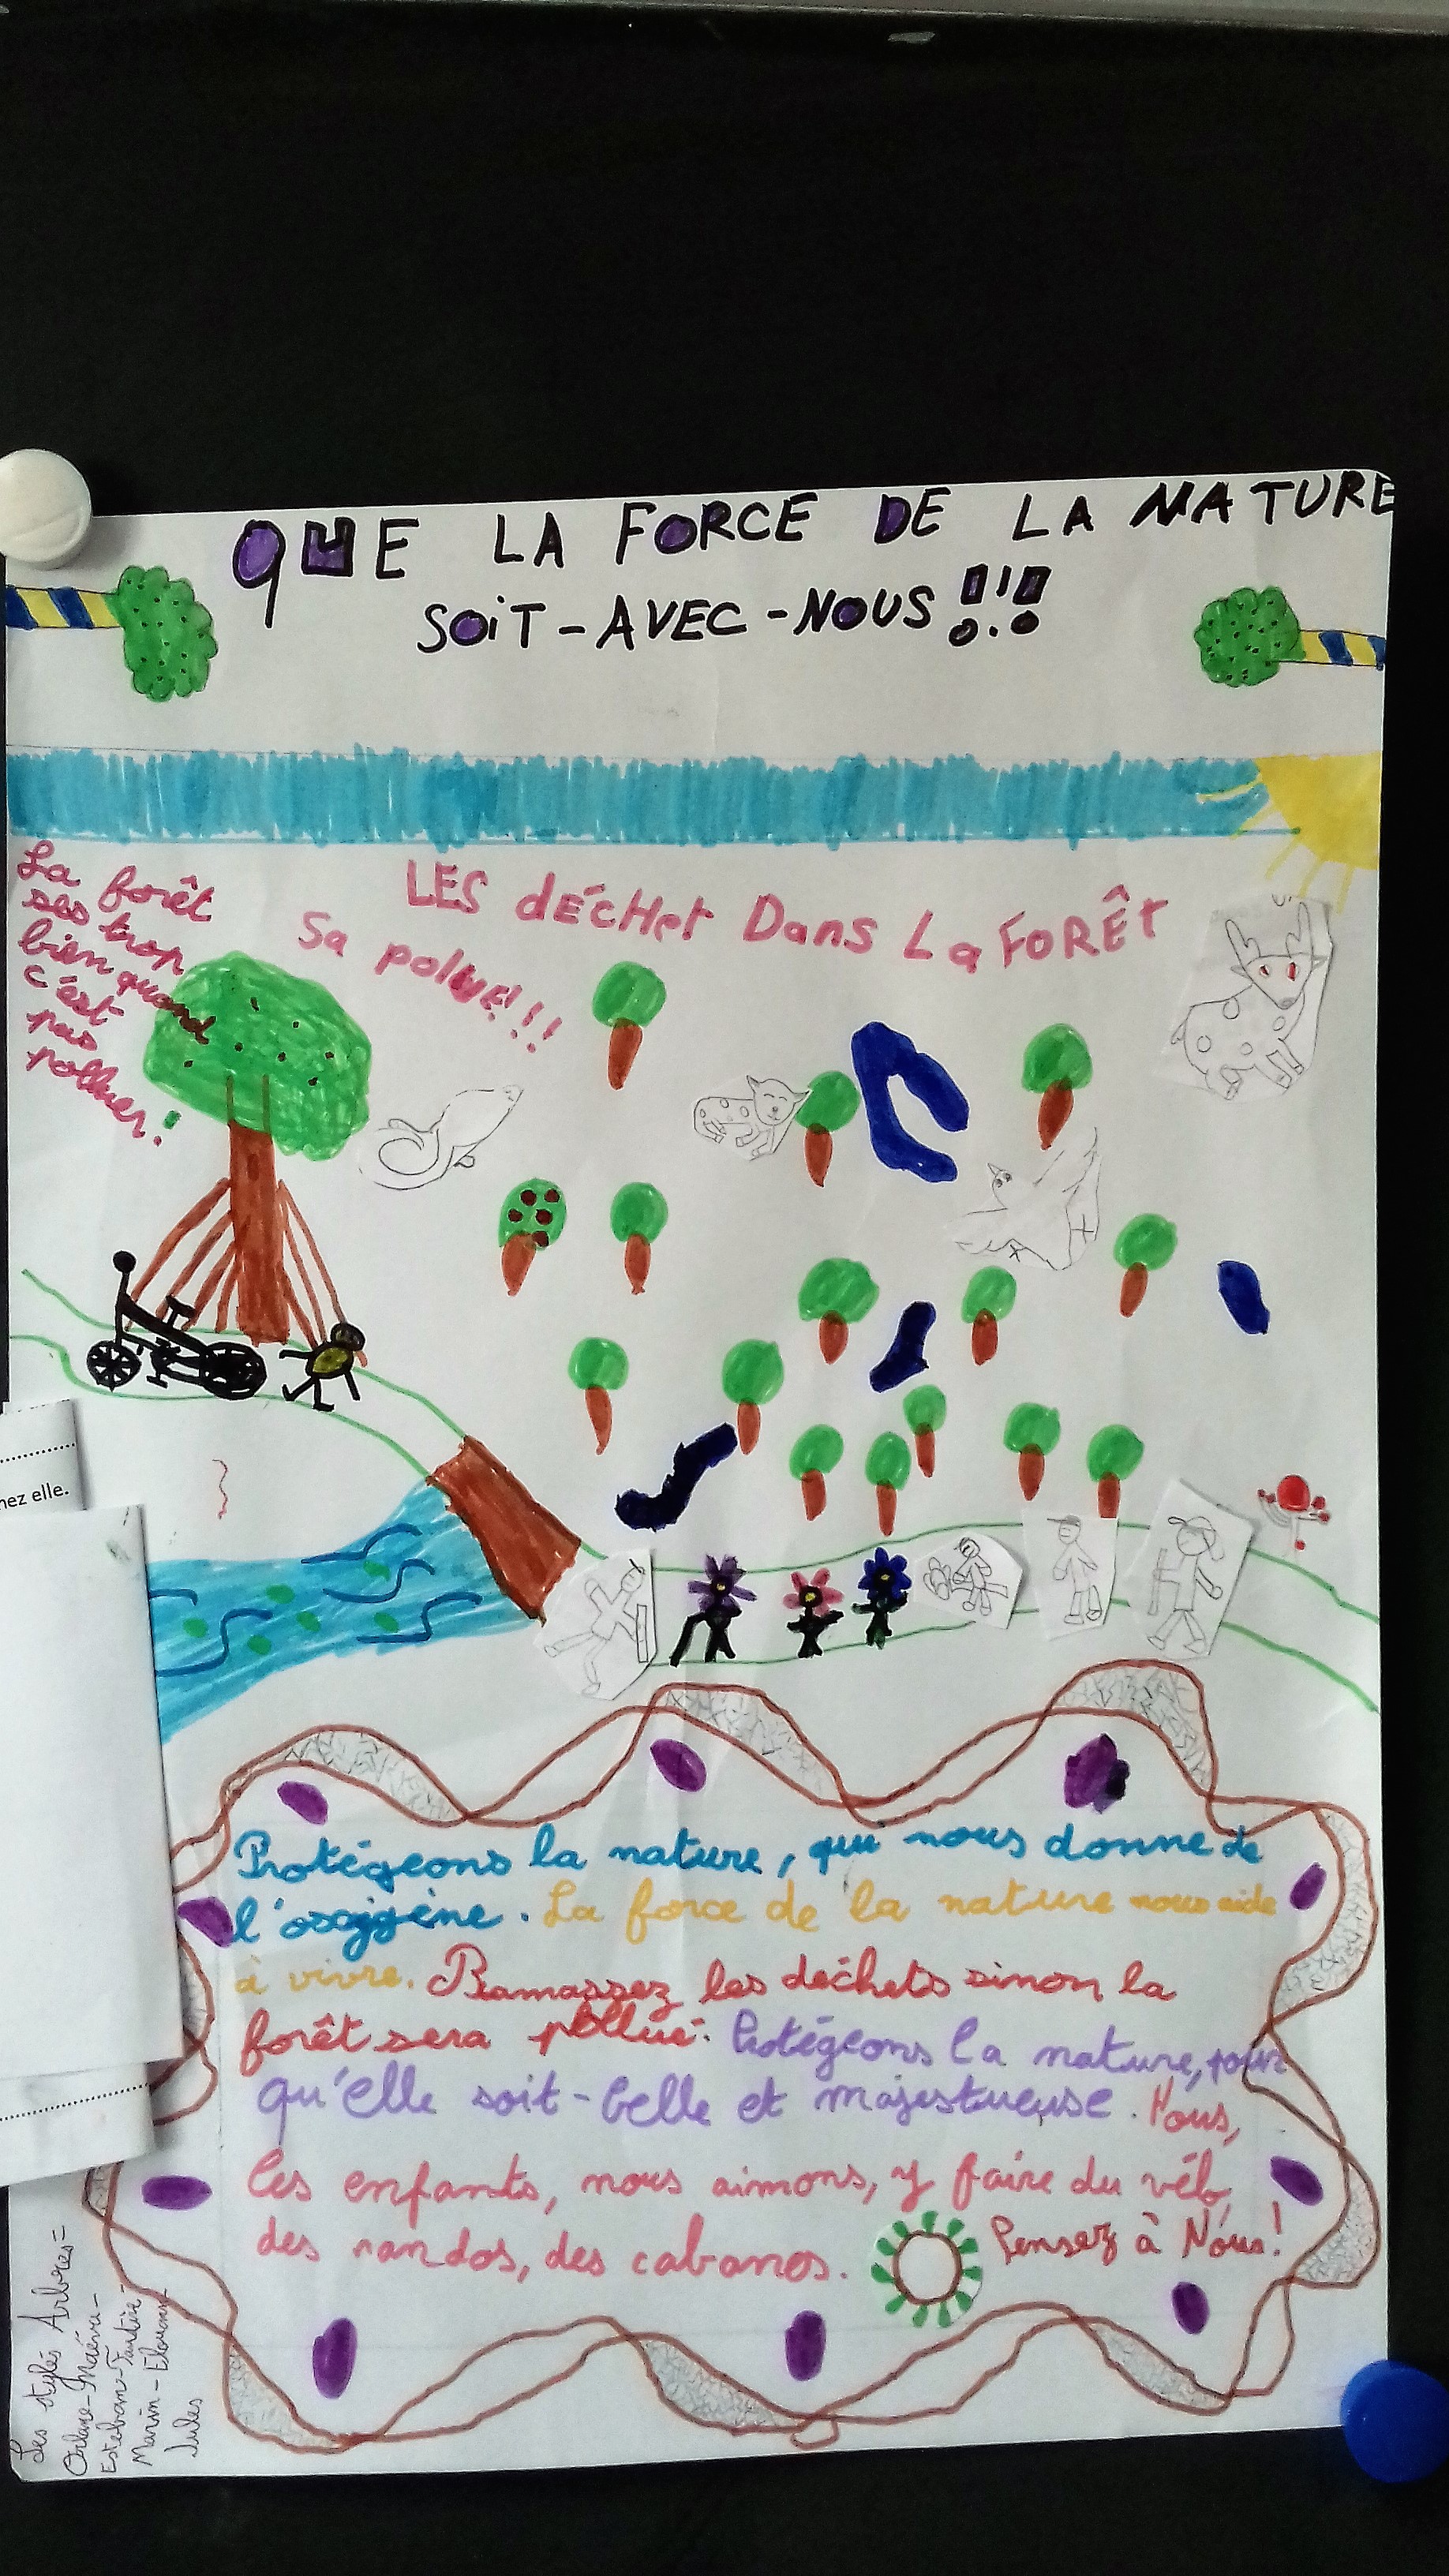 QUE LA FORCE DE LA NATURE
SOiT-AVEC-NOUS!!!
LES déCHet Dans La FORÊt
Sa polue!!!
La forêt
ses trop
bien quand
c'est
pas
polluer!
nez elle.
Protégeons la nature, qui nous donne de
l'oxygène. La force de la nature nous aide
à vivre. Ramassez les déchets sinon la
forêt sera pollué. Protégeons la nature, pour
qu'elle soit-belle et majestueuse. Nous,
les enfants, nous aimons, y faire du vélo,
des randos, des cabanes. Pensez à Nous!
Les stylés Arbres=
Orlane-Maéva-
Esteban-
Marin-Elouann
Jules